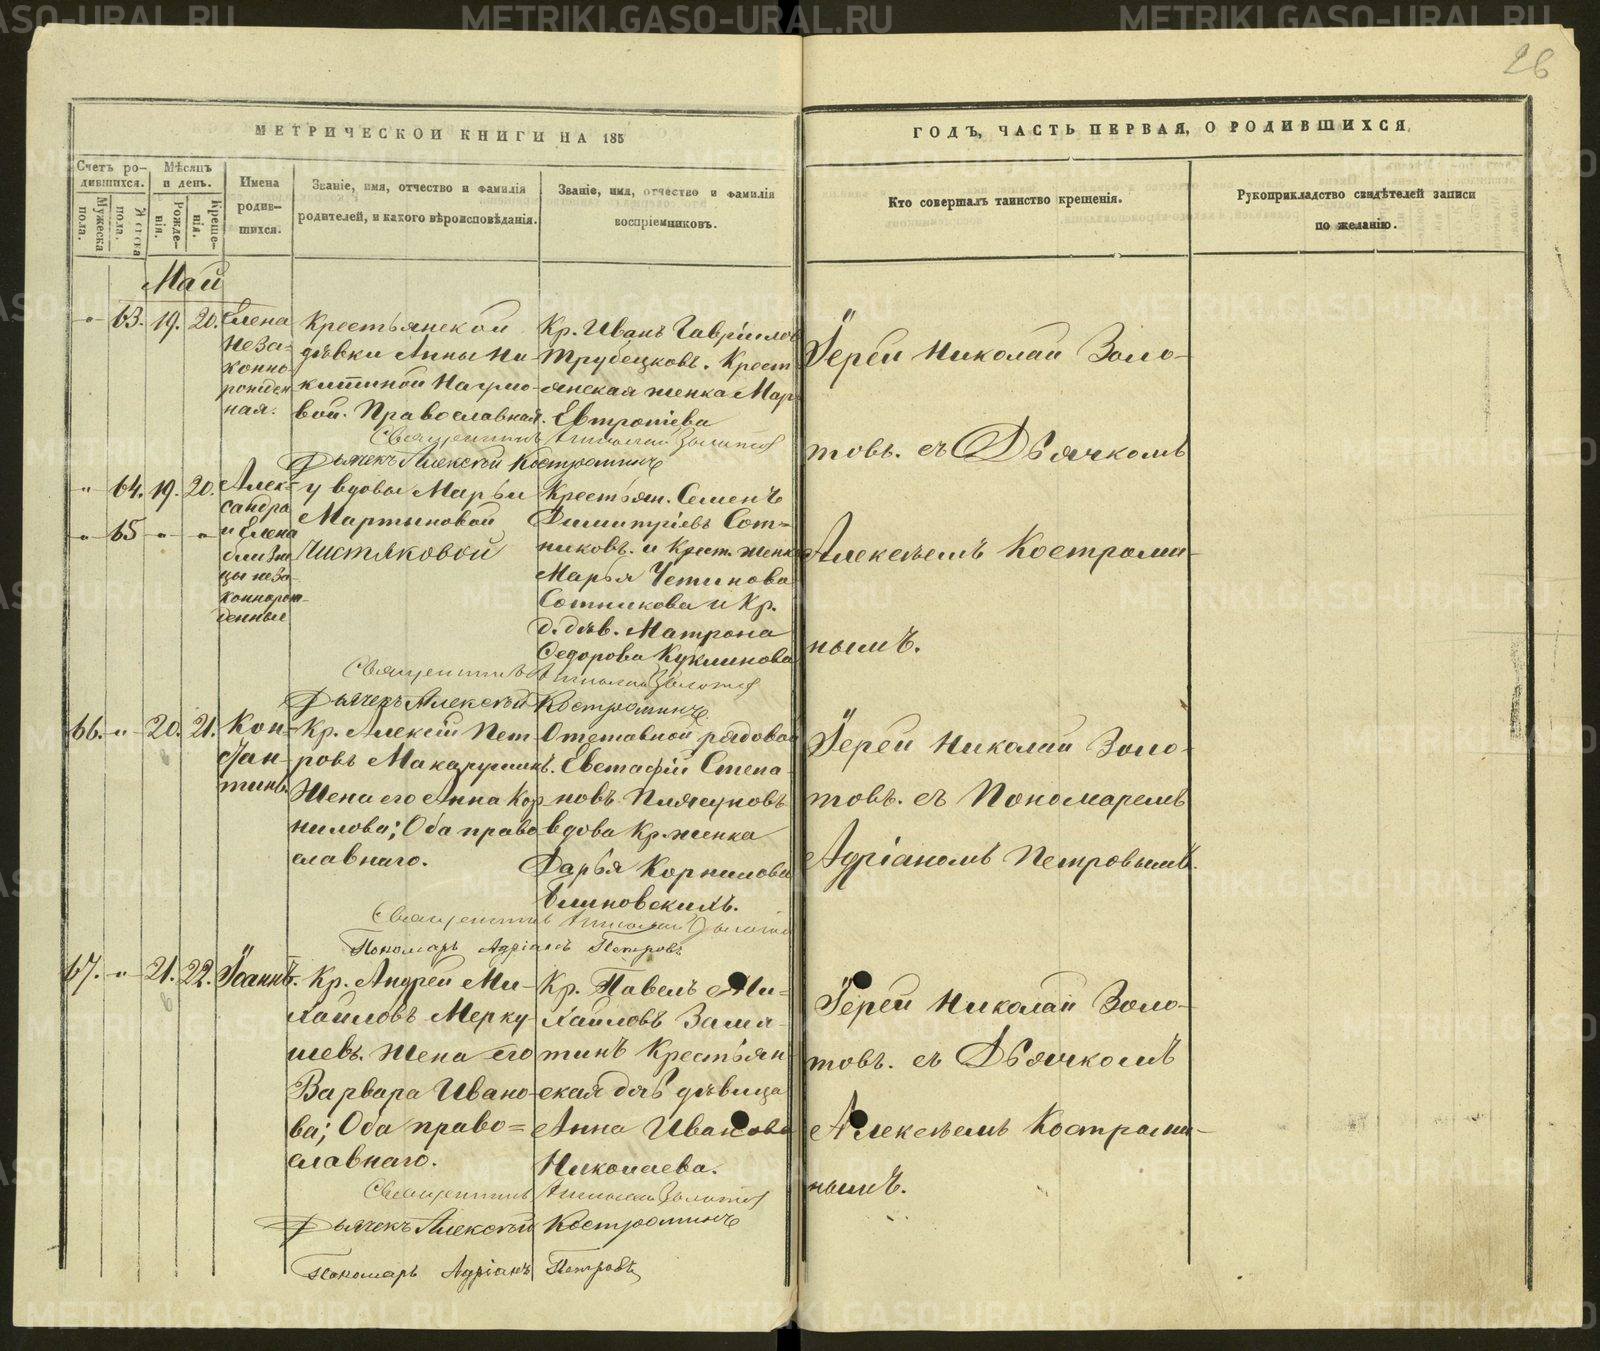 METRIKI.GASO-URAL.RU
26
МЕТРИЧЕСКОЙ КНИГИ НА 185
ГОДЪ, ЧАСТЬ ПЕРВАЯ, О РОДИВШИХСЯ.
Счетъ ро-
дившихся.
Мужеска
пола.
Женска
пола.
Мѣсяцъ
и день.
Рожде-
нія.
Креще-
нія.
Имена
родив-
шихся.
Званіе, имя, отчество и фамилія
родителей, и какого вѣроисповѣданія.
Званіе, имя, отчество и фамилія
воспріемниковъ.
Кто совершалъ таинство крещенія.
Рукоприкладство свидѣтелей записи
по желанію.
Май
" 63. 19. 20.
Елена
неза-
конно
рожден
ная.
Крестьянской
дѣвки Анны Ни-
китиной Наумо-
вой. Православная.
Кр. Иванъ Гавріилов
Трубецковъ. Крест
янская женка Мар
Евтропіева
Іерей Николай Золо-
товъ. съ Дьячкомъ
Алексѣемъ Костроми-
нымъ.
Священникъ Николай Золотов
Дьячекъ Алексѣй Костроминъ
" 64. 19. 20.
" 65 " "
Алек-
сандра
и Елена
близне
цы неза-
коннорож-
денные
у вдовы Марьи
Мартыновой
Чистяковой
Крестьян. Семенъ
Димитріевъ Сот-
никовъ. и Крест. женка
Марья Устинова
Сотникова и Кр.
д. дѣв. Матрона
Федорова Куклинова
Священникъ Николай Золотов
Дьячекъ Алексѣй Костроминъ
66. " 20. 21.
Кон-
стан-
тинъ
Кр. Алексій Пет-
ровъ Макарушинъ.
Жена его Анна Кор
нилова; Оба право
славнаго.
Отставной рядовой
Евстафій Степа-
новъ Плясуновъ
вдова Кр. женка
Дарья Корнилова
Блиновскихъ.
Іерей Николай Золо-
товъ. съ Пономаремъ
Адріаномъ Петровымъ.
Священникъ Николай Золотов
Пономарь Адріанъ Петровъ
67. " 21. 22.
Іоаннъ.
Кр. Андрей Ми-
хайловъ Мерку
шевъ. Жена его
Варвара Ивано-
ва; Оба право=
славнаго.
Кр. Павелъ Ми-
хайловъ Замя-
тинъ Крестьян-
ская дчь дѣвица
Анна Иванова
Николаева.
Іерей Николай Золо-
товъ. съ Дьячкомъ
Алексѣемъ Костроми-
нымъ.
Священникъ Николай Золотов
Дьячекъ Алексѣй Костроминъ
Пономарь Адріанъ Петровъ